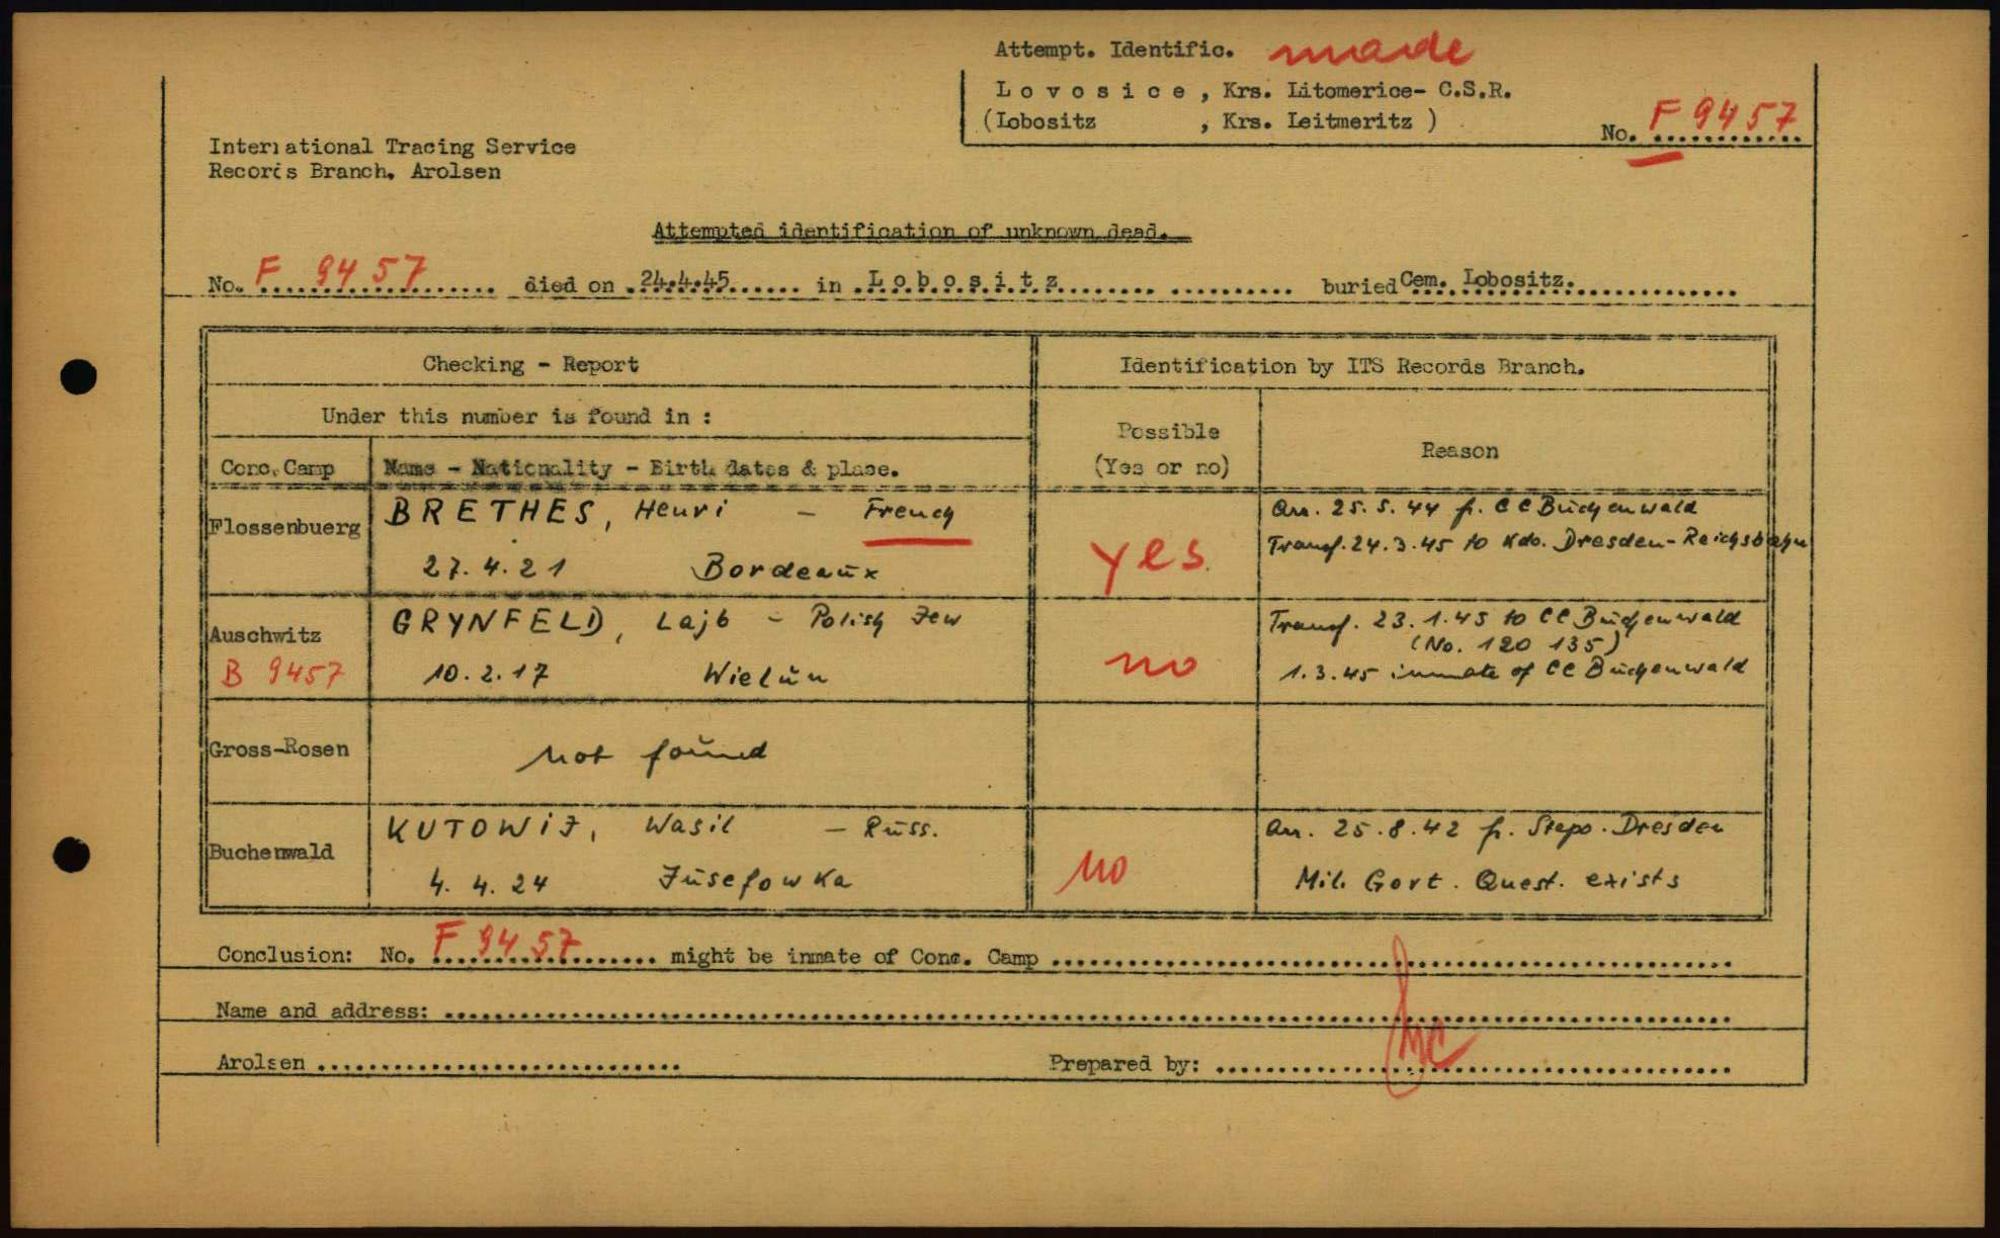 Attempt. Identific. made
L o v o s i c e , Krs. Litomerice- C.S.R.
(Lobositz , Krs. Leitmeritz )
No. F 9457
International Tracing Service
Records Branch. Arolsen
Attempted identification of unknown dead.
No. F 9457 died on 24.4.45 in L o b o s i t z buried Cem. Lobositz.
Checking - Report
Identification by ITS Records Branch.
Under this number is found in :
Possible
(Yes or no)
Reason
Conc. Camp
Name - Nationality - Birth dates & place.
Flossenbuerg
BRETHES, Henri - French
27.4.21 Bordeaux
yes
Arr. 25.5.44 fr. CC Buchenwald
Transf. 24.3.45 to Kdo. Dresden-Reichsbahn
Auschwitz
B 9457
GRYNFELD, Lajb - Polish Jew
10.2.17 Wielun
no
Transf. 23.1.45 to CC Buchenwald
(No. 120 135)
1.3.45 inmate of CC Buchenwald
Gross-Rosen
not found
Buchenwald
KUTOWIJ, Wasil - Russ.
4. 4. 24 Jusefowka
no
Arr. 25.8.42 fr. Stapo. Dresden
Mil. Govt. Quest. exists
Conclusion: No. F 9457 might be inmate of Conc. Camp
Name and address:
Arolsen
Prepared by: